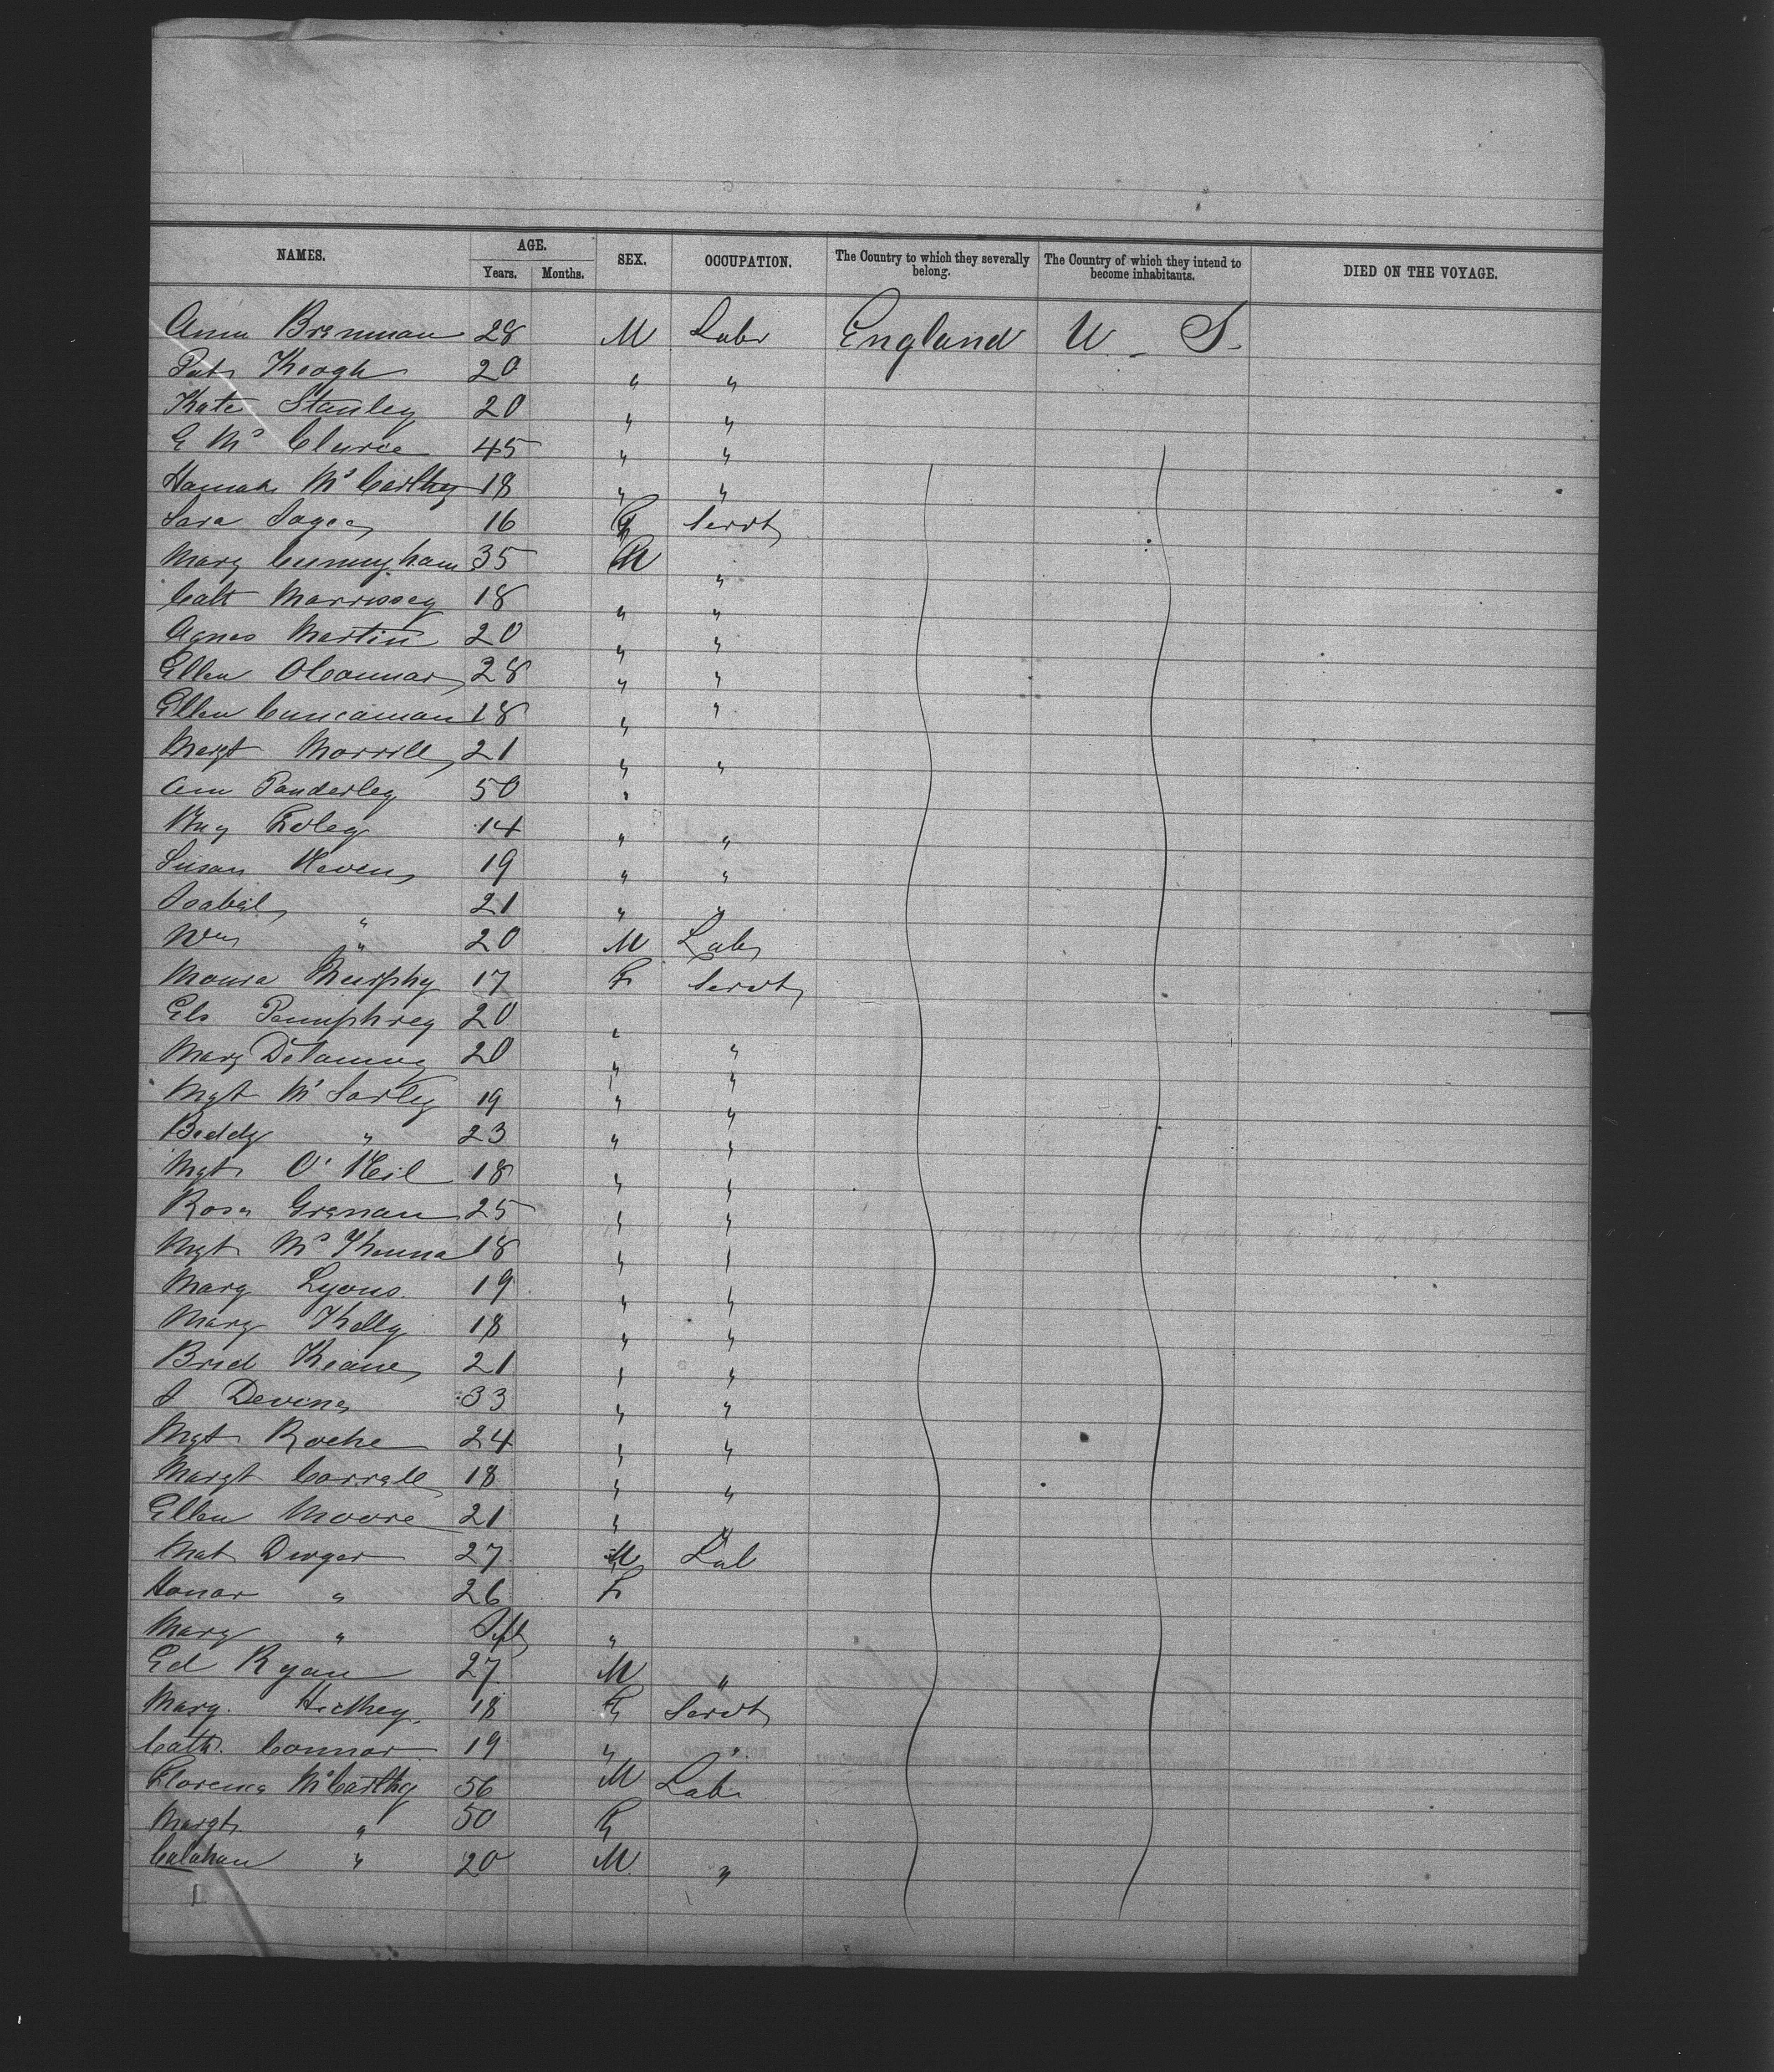 NAMES. AGE. SEX. OCCUPATION. The Country to which they severally belong. The Country of which they intend to become inhabitants. DIED ON THE VOYAGE.
Years. Months.
Anna Brennan 28 M Labr England U - S
Pat Keogh 20 " "
Kate Stanley 20 " "
E Mc Clurie 45 " "
Hannah Mc Carthy 18 " "
Sara 16 F Servt
Mary Cunningham 35 M "
Cath Morrissey 18 " "
Agnes Martin 20 " "
Ellen OConnar 28 " "
Ellen 18 " "
Margt Morrill 21 " "
Ann Panderley 50 "
Foley 14 " "
Susan Heven 19 " "
Isabel " 21 " "
Wm " 20 M Lab
Moura Murphy 17 F Servt
Els Pumphrey 20 " "
Mary Delaney 20 " "
Mgt Mc Sorley 19 " "
Biddy " 23 " "
Mgt O'Neil 18 " "
Rosa Grenan 25 " "
Mgt Mc Kenna 18 " "
Mary Lyons 19 " "
Mary Kelly 18 " "
Brid Keane 21 " "
Devine 33 " "
Mgt Roche 24 " "
Margt Carrall 18 " "
Ellen Moore 21 " "
Mat Dwyer 27 M Lab
Honor " 26 F
Mary " Inft "
Ed Ryan 27 M "
Mary 18 F Servt
Cath. Connor 19 " "
Florence McCarthy 56 M Lab
Margt " 50 F
Calahan " 20 M "